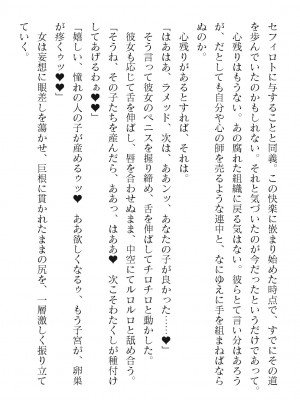 セフィロトに与することと同義。この快楽に嵌まり始めた時点で、すでにその道
を歩んでいたのかもしれない。それと気づいたのが今だったというだけであって。
心残りはもうない。あの腐れた組織に戻る気はない。彼らとて言い分はあろう
が、だとしても自分や心の師を売るような連中と、なにゆえに手を組まねばなら
ぬのか。
心残りがあるとすれば、それは。
「はあはあ、ラメッド、次は、ああンッ、あなたの子が良かった……♥」
そう言って彼女のペニスを握り締め、舌を伸ばしてチロチロと動かした。
彼女も応じて舌を伸ばし、唇を合わせぬまま、中空にてルロルロと舐め合う。
「そうね、その子たちを産んだら、ああっ、はああ♥　次こそわたくしが種付け
してあげるわぁ♥♥」
「嬉しい、憧れの人の子が産めるゥッ♥　ああ欲しくなるゥ、もう子宮が、卵巣
が疼くゥッ♥♥」
女は妄想に眼差しを蕩かせ、巨根に貫かれたままの尻を、一層激しく振り立て
ていく。